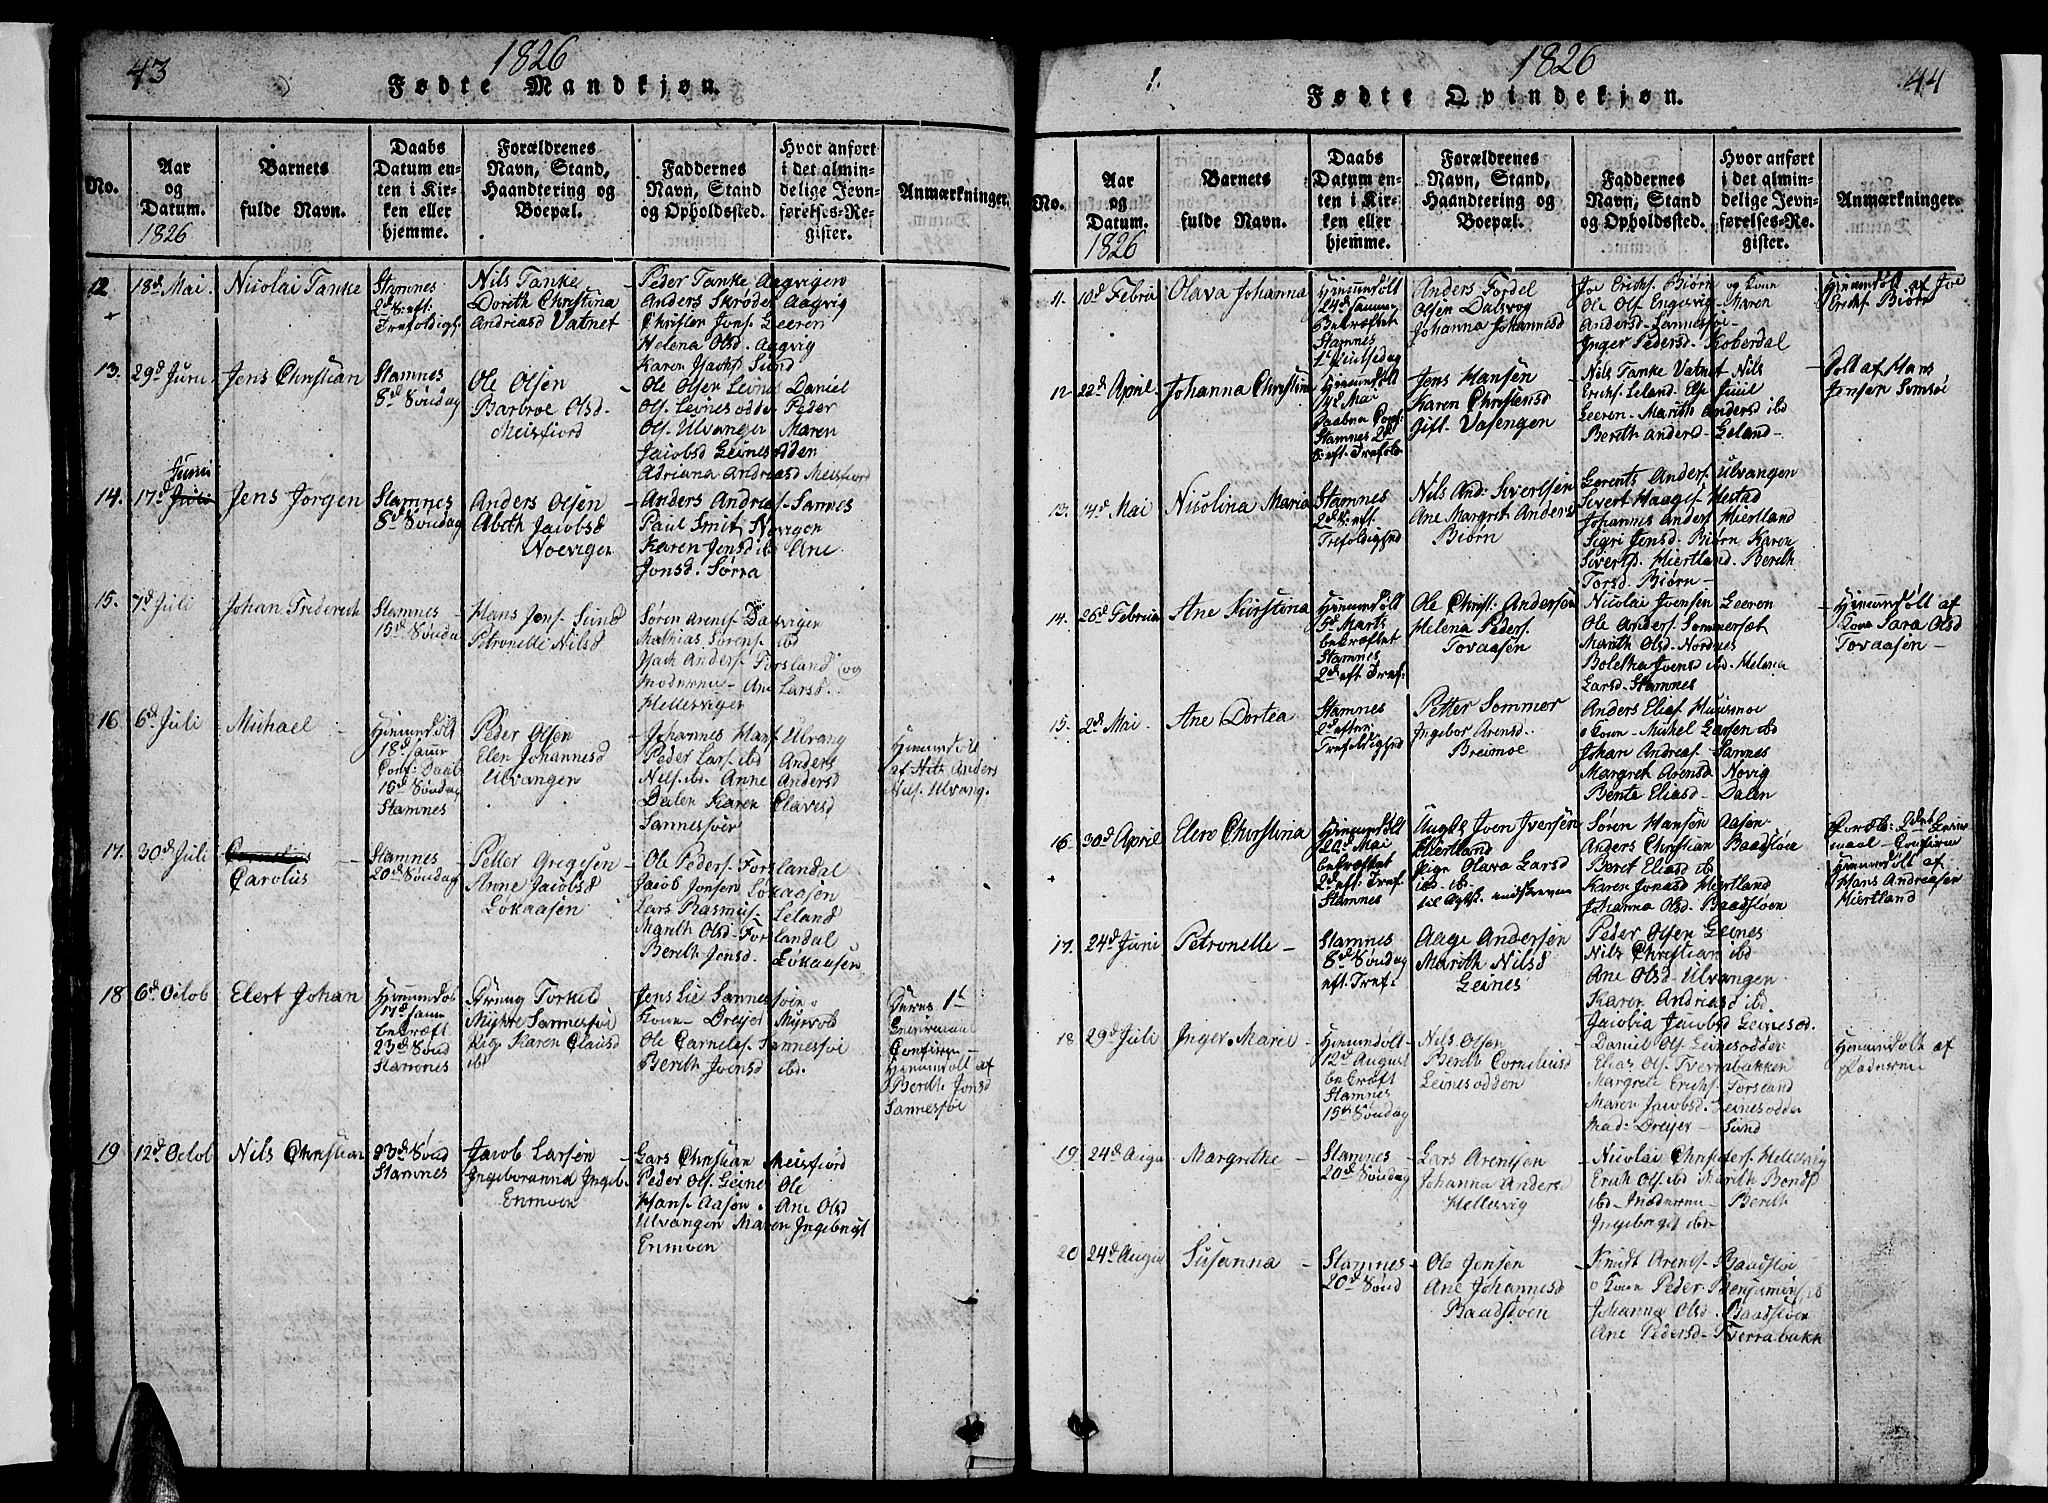 43
1826
Fødte Mandkjøn.
No.
Aar og Datum.
1826
Barnets fulde Navn.
Daabs Datum enten i Kirken eller hjemme.
Forældrenes Navn, Stand, Haandtering og Boepæl.
Faddernes Navn, Stand og Opholdssted.
Hvor anført i det almindelige Jevnførelses-Register.
Anmærkninger.
12
18d Mai
Nicolai Tanke
Stamnes
2d S: eft.
Trefoldigh
Nils Tanke
Dorith Christina
Andriasd Vatnet
Peder Tanke Aagvigen
Anders Skrøder Aagvig
Christen Jons. Leeren
Helena Olsd. Aagvig
Karen Isachs Sund
13.
29d Juni
Jens Christian
Stamnes
5d Søndag
Ole Olsen
Barbroe Olsd.
Meisfiord
Ole Olsen Leines Daniel
Ols. Leinesodde Peder
Ols. Ulvangen Maren
Jacobsd Leinesodden
Adriana Andreasd Meisfiord
14.
Juni
17d Juli
Jens Jørgen
Stamnes
5d Søndag
Anders Olsen
Abeth Jacobsd
Noevigen
Anders Andreas. Sannes
Paul Smit Novigen
Karen Jensd ib Ane
Jonsd. Sørra
15.
7d Juli
Johan Frederich
Stamnes
15d Sønda
Hans Jons. Sund
Petronelle Nilsd
Søren Arents. Dalsvigen
Mathias Sørens. ib
Isach Anders. Forsland og
Moderen - Ane Larsd.
Hellesvigen
16
6d Juli
Michael
Hiemmedøbt
18d samme
Conf: Daab
15d Søndag
Stamnes
Peder Olsen
Elen Johannesd
Ulvangen
Johannes Hans. Ulvang
Peder Lars. ibd Anders
Nils. ibd. Anne Andersd
Dalen Karen Clavesd
Sannessøen
Hiemmedøbt
af Anders
Nils. Ulvang.
17.
30d Juli
Cornelius
Carolus
Stamnes
20d Søndag
Petter Gregesen
Anne Jacobsd
Løkaasen
Ole Peders. Forslandal
Jacob Jonsen Løkaasen
Lars Rasmus. Leland
Marith Olsd. Forslandal
Berith Jonsd. Løkaasen
18
6d Octob
Elert Johan
Hiemmedøb
17d samme
bekræft
23d Sønd
Stamnes
Dreng Torkild
Myhre Sannessøe
Pig Karen Clausd
ibd
Jens Lie Sannessøen o
Kone - Dreyer Myrvol
Ole Carnels. Sannessøe
Berith Joensd ibd.
Deres 1te
Leiermaal
Confiren
Hiemmedøbt af
Berith Jonsd
Sannessøe
19
12d Octob
Nils Christian
23d Sønd
Stamnes
Jacob Larsen
Ingeboranna Ingeb.
Enmoen
Lars Christian Meisfiord
Peder Ols. Leines Ole
Hans. Aasen. Ane Olsd
Ulvangen Maren Ingebrigt
Enmoen
1826
44
Fødte Qvindekjøn.
No.
Aar og Datum.
1826
Barnets fulde Navn.
Daabs Datum enten i Kirken eller hjemme.
Forældrenes Navn, Stand, Haandtering og Boepæl.
Faddernes Navn, Stand og Opholdssted.
Hvor anført i det almindelige Jevnførelses-Register.
Anmærkninger.
11.
10d Febru
Olava Johanna
Hiemmedøbt
24d samme
Bekræftet
Stamnes
1d Pintsedag
Anders Fordel
Olsen Dalsvog
Johanna Johannesd
Joe Erichs. Biørn og Kone
Ole Ols. Engesvig Maren
Andersd. Sannessøe
Inger Pedersd. Koberdal
Hiemmedøbt af Joe
Erichs. Biørn
12
22d April
Johanna Christine
Hiemmedøbt
14d Mai
Daaben Conf:
Stamnes 2d
S: eft. Trefold
Jens Hansen
Karen Christensd
Gift. Vasengen
Nils Tanke Vatnet Nils
Erichs. Leland. Else Juul
Leeren. Marith Andersd ibd
Berith Andersd. Leland
Døbt af Hans
Jensen Somsøe
13.
14d Mai
Nicolina Maria
Stamnes
2d S: eft.
Trefoldighed
Nils And: Sivertsen
Ane Margret Anders
Biørn
Lorents Anders. Ulvangen
Sivert Haages. Hestad
Johannes Anders. Hiertland
Sigri Jensd. Biørn Karen
Sivertsd. Hiertland. Berith
Torsd. Biørn
14.
26d Februa
Ane Kirstina
Hiemmedøbt
5d Marts
bekræftet
Stamnes
2d eft. Tref.
Ole Christ: Andersen
Helena Peders.
Tovaasen
Nicolai Ivensen Leeren
Ole Anders. Sommersæt
Marith Olsd. Nordnes
Boletha Ivensd. ibd. Helena
Larsd. Stamnes
Hiemmedøbt af
Kone Sara Olsd
Tovaasen
15.
2d Mai
Ane Dortea
Stamnes
2d efter
Trefoldighed
Petter Sommer
Ingebor Arensd.
Breimoe
Anders Elias Huusmoe
o Kone. Michel Larsen ibd
Johan Andreas. Sannes
Margret Arensd. Novig
Bente Eliasd. Dalen
16
30d April
Elen Christina
Hiemmedøbt
20d Mai
bekræftet
2d eft: Tref.
Stamnes
Ungkl Iven Iversen
Hiertland
Pige Olava Larsd
ibd. ib.
til Ægt.
Søren Hansen Aasen
Anders Christian Baadsløe
Beret Eliasd ib
Karen Jonasd Hiertland
Johanna Olsd. Baadsløen
2det Leier
maal - Confiren
Hiemmedøbt af
Hans Andreasen
Hiertland
17.
24d Juni
Petronelle
Stamnes
5d Søndag
eft. Tref.
Aage Andersen
Marith Nilsd
Leines
Peder Olsen Leines
Nils Christian ibd
Ane Olsd Ulvangen
Karen Andriasd ibd
Jacobia Jacobsd Leinesod.
18
29d Juli
Inger Marie
Hiemmedøbt
12d August
bekræft
Stamnes
15d Søndag
Nils Olsen
Berith Corneliusd
Leinesodden
Daniel Ols. Leinesodden
Elias Ols. Tverrabakken
Margrete Erichs. Forsland
Maren Jacobsd. Leinesodden
Mad: Dreyer Sund
Hiemmedøbt af
Faderen
19.
24d Augu
Margrethe
Stamnes
20d Søndag
Lars Arentsen
Johanna Anders
Hellesvig
Nicolai Chr. Peders. Hellesvig
Erich Ols. ibd Marith Bendts
ibd. Moderen. Berith
Ingebrigt ibd.
20
24d Augu
Susanna
Stamnes
20d Sønd
Ole Jensen
Ane Johannesd
Baadsloen
Knidt Arends. Baadsloe
o Kone Peder Benjaminsd
Johanna Olsd. Baadsloen
Ane Pedersd. Tverrabakk